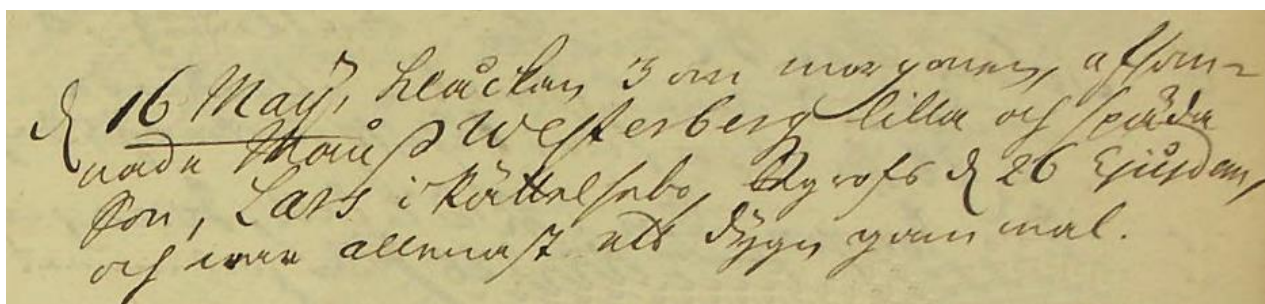 d 16 Maÿ, klåckan 3 om morgonen, afsom-
nade Månß Westerberg lilla och späda
son, Lars i Kättelsebo, Bgrofs d 26 Ejusdem,
och war allenast ett dÿgn gammal.